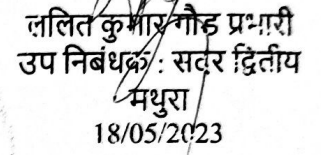 ललित कुमार गौड प्रभारी
उप निबंधक : सदर द्वितीय
मथुरा
18/05/2023